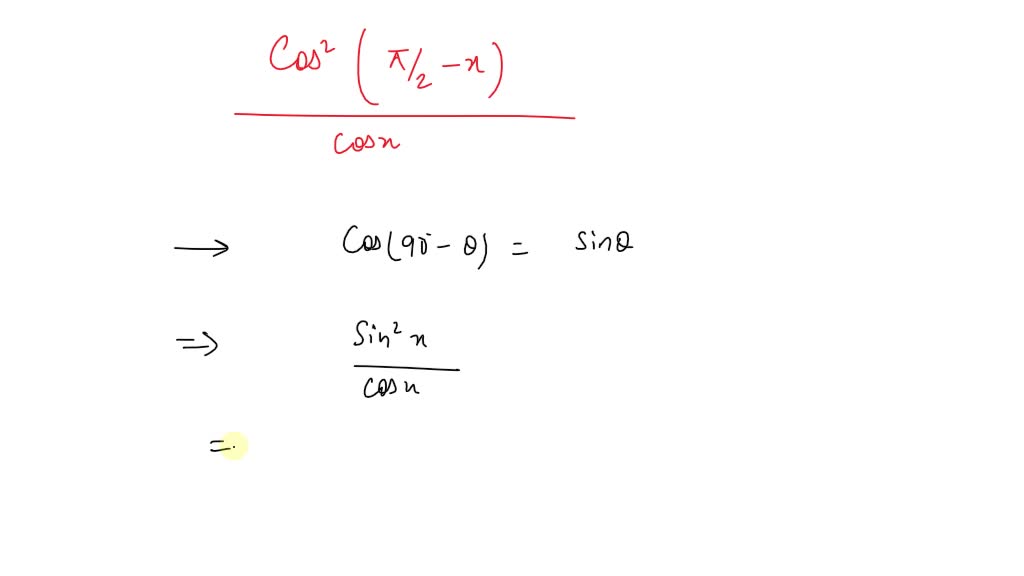 Cos² (π/2 - x)
cosx
→ Cos(90° - θ) = sinθ
⇒ Sin² x
cosx
=